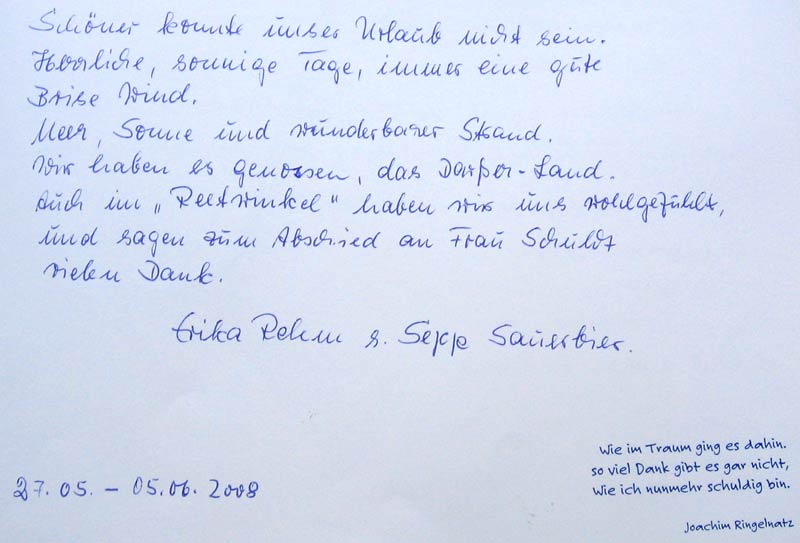 Schöner konnte unser Urlaub nicht sein.
Herrliche, sonnige Tage, immer eine gute
Brise Wind.
Meer, Sonne und wunderbarer Strand.
Wir haben es genossen, das Darßer-Land.
Auch im „Reetwinkel" haben wir uns wohlgefühlt,
und sagen zum Abschied an Frau Schuldt
vielen Dank.
Erika Rehm u. Sepp Sauerbier.
27.05. – 05.06. 2008
Wie im Traum ging es dahin.
so viel Dank gibt es gar nicht,
Wie ich nunmehr schuldig bin.
Joachim Ringelnatz